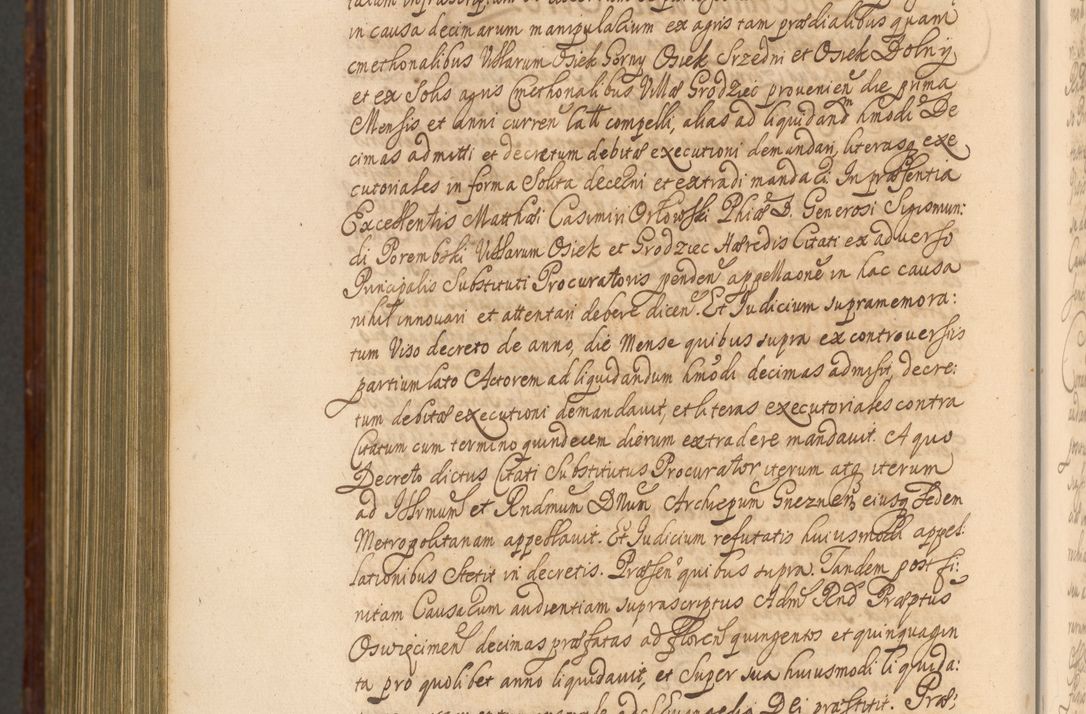 in causa decimarum manipulalium ex agris tam prædialibus quam
cmethonalibus Villarum Osiek Gorny Osiek Srzedni et Osiek Dolny
et ex Solis agris Cmethonalibus Villæ Grodziec provenien die prima
Mensis et anni curren latt compelli, alias ad liquidand hmodi De
cimas admitti et decretum debitæ executioni demandari, literasq exe
cutoriales in forma Solita decerni et extradi mandari. In præsentia
Excellentis Matthæi Casimiri Orłowski Phiæ D. Generosi Sigismun:
di Porembski Villarum Osiek et Grodziec Hæredis Citati ex adverso
Principalis Substituti Procuratoris penden appellaone in hac causa
nihil innovari et attentari debere dicen. Et Judicium supramemora:
tum Viso decreto de anno, die Mense quibus supra ex controversis
partium lato Actorem ad liquidandum hmodi decimas admisit, decre:
tum debitæ executioni demandavit, et literas executoriales contra
Citatum cum termino quindecem dierum extradere mandavit. A quo
Decreto dictus Citati Substitutus Procurator iterum atq iterum
ad Illrmum et Rndmum Dnum Archiepum Gneznen eiusq Sedem
Metropolitanam appellavit. Et Judicium refutatis huiusmodi appel:
lationibus Stetit in decretis. Præsen quibus supra. Tandem post fi:
nitam Causarum audientiam suprascriptus Adm Rnd Præptus
Oswięcimen decimas præfatas ad florens quingentos et quinquagin
ta pro quolibet anno liquidavit, et Super sua huiusmodi liquida:
Dei præstitit. Præ: